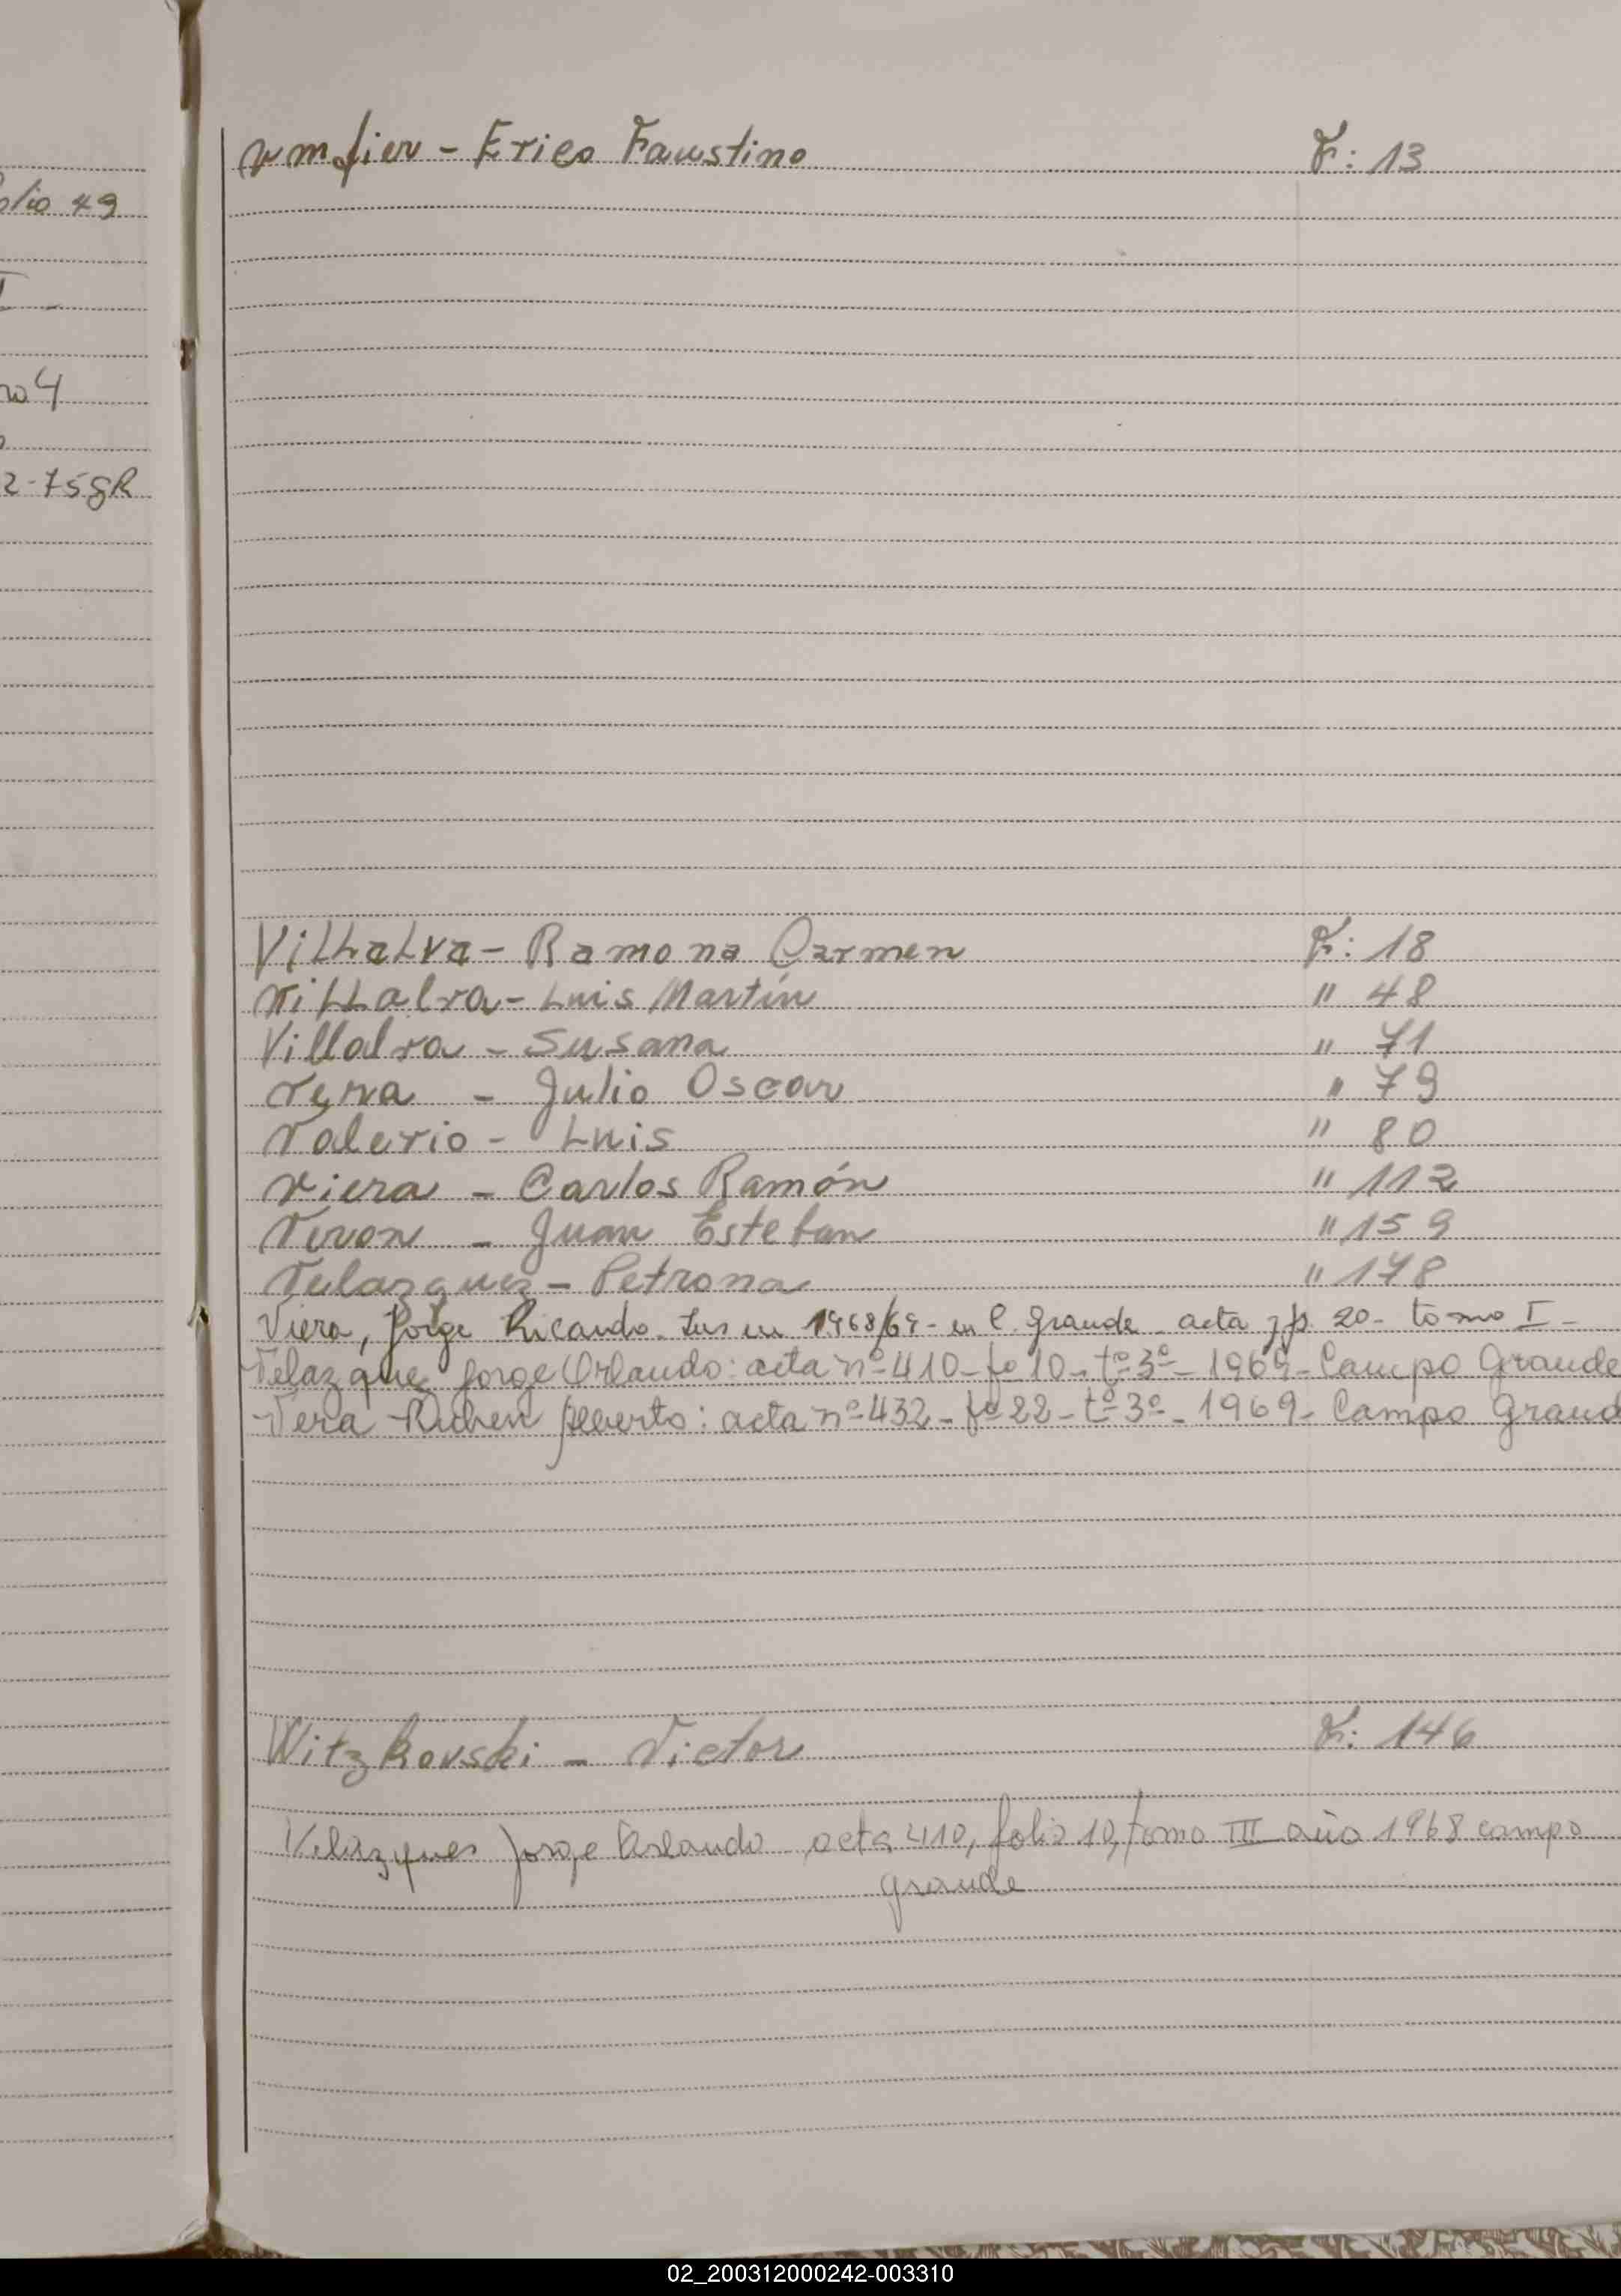 olio 49
I -
ro 4
2-758R
Umfier - Erico Faustino F: 13
Villalva - Ramona Carmen F: 18
Villalva - Luis Martín " 48
Villalva - Susana " 71
Vera - Julio Oscar " 79
Valerio - Luis " 80
Viera - Carlos Ramón " 112
Veron - Juan Esteban " 159
Velazquez - Petrona " 178
Viera, Jorge Ricardo. Ins en 1968/69 - en C. Grande - acta 39. 20 - tomo I -
Velazque Jorge Orlando: acta nº 410 - fº 10 - tº 3º - 1969 - Campo Grande
Vera Ruben Alberto: acta nº 432 - fº 22 - tº 3º - 1969 - Campo Grand
Witzkovski - Victor F: 146
Velázques Jorge Orlando acta 410, folio 10, tomo III año 1968 campo
grande
02_200312000242-003310